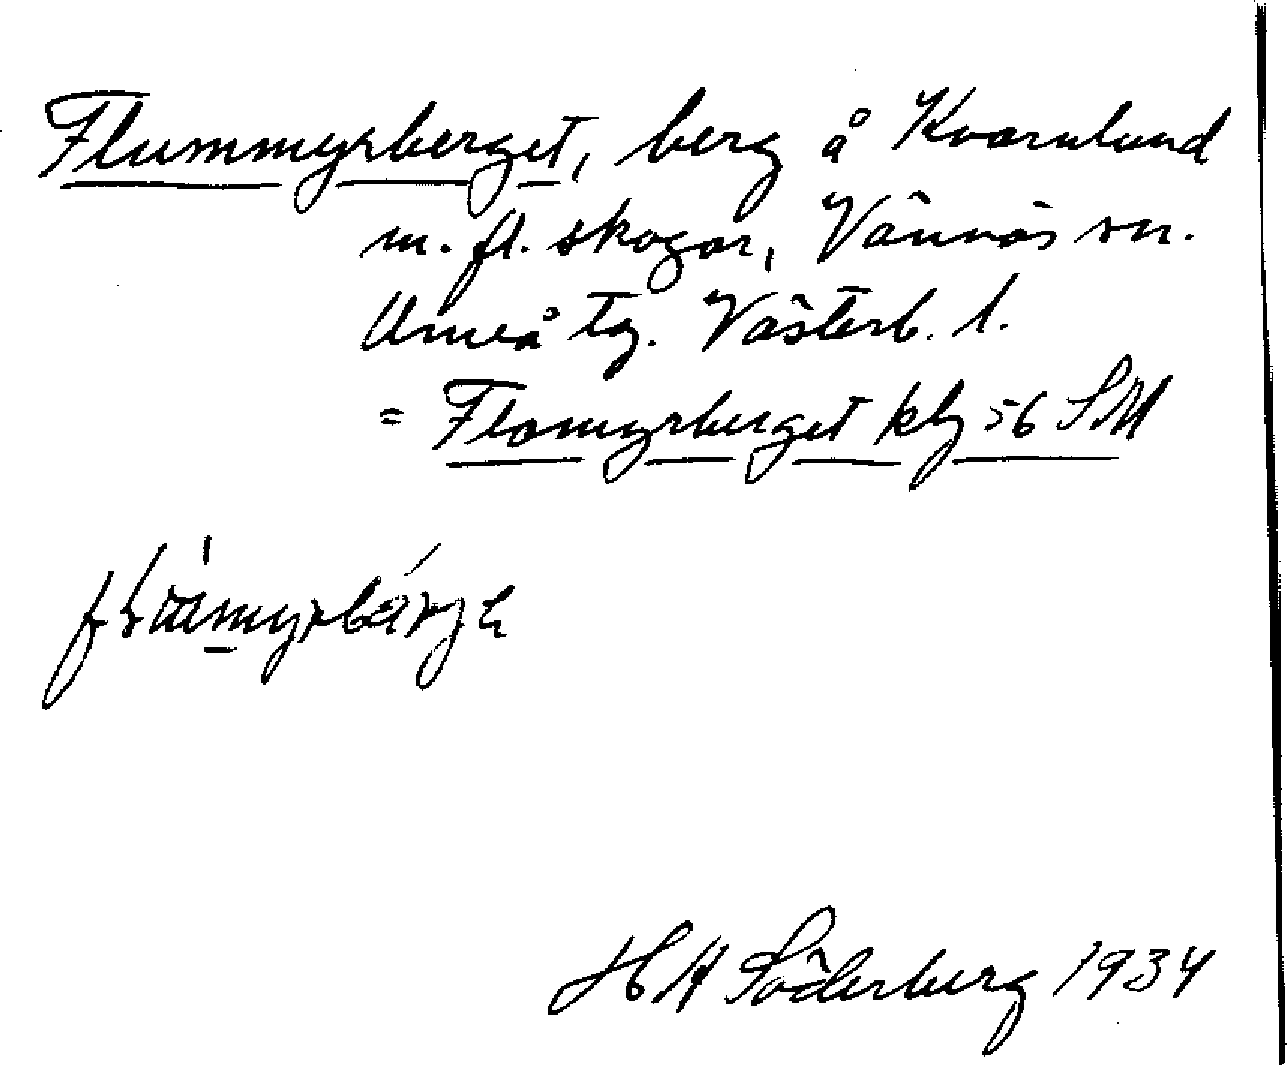 Flummyrberget, berg å Kvarnlund
m. fl. skogar, Vännäs sn.
Umeå tg. Västerb. l.
= Flomyrberget klg 56 SM
H A Söderberg 1934